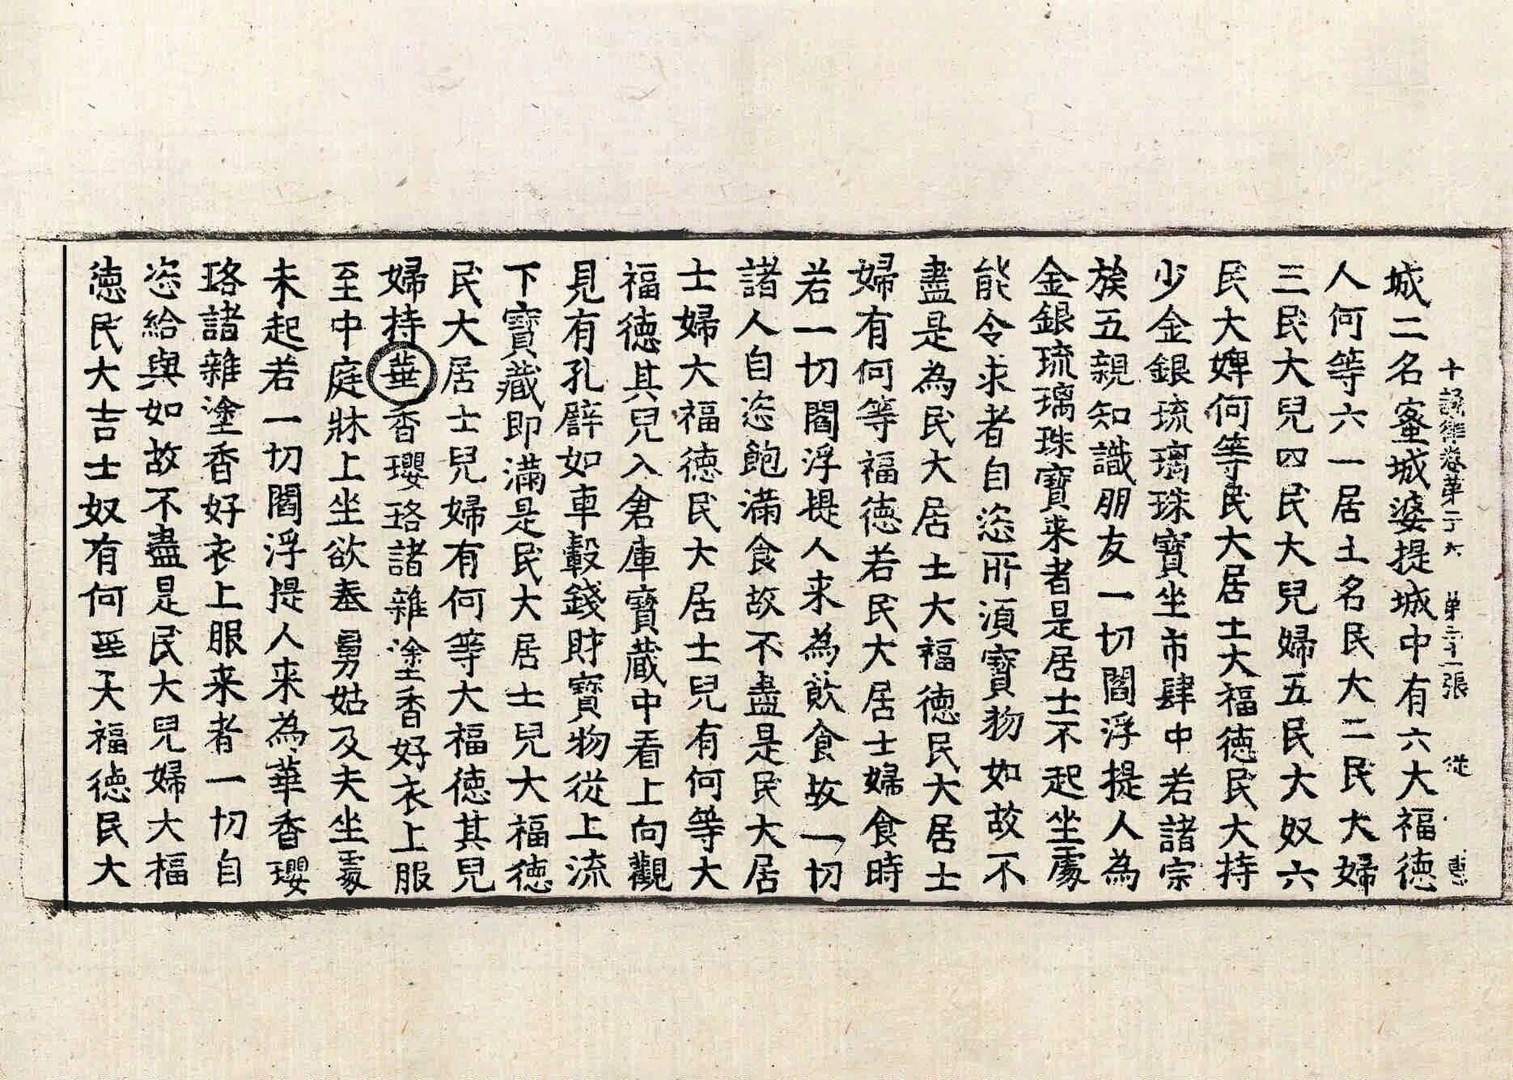 十誦律卷第二十六 第三十一張 從 惠
城二名蜜城婆提城中有六大福德
人何等六一居士名民大二民大婦
三民大兒四民大兒婦五民大奴六
民大婢何等民大居士大福德民大持
少金銀琉璃珠寶坐市肆中若諸宗
族五親知識朋友一切閻浮提人為
金銀琉璃珠寶来者是居士不起坐處
能令求者自恣所湏寶物如故不
盡是為民大居士大福德民大居士
婦有何等福德若民大居士婦食時
若一切閻浮提人来為飲食故一切
諸人自恣飽滿食故不盡是民大居
士婦大福德民大居士兒有何等大
福德其兒入倉庫寶藏中看上向觀
見有孔譬如車轂錢財寶物從上流
下寶藏即滿是民大居士兒大福德
民大居士兒婦有何等大福德其兒
婦持華香瓔珞諸雜塗香好衣上服
至中庭牀上坐欲奉舅姑及夫坐處
未起若一切閻浮提人来為華香瓔
珞諸雜塗香好衣上服来者一切自
恣給與如故不盡是民大兒婦大福
德民大吉士奴有何等大福德民大